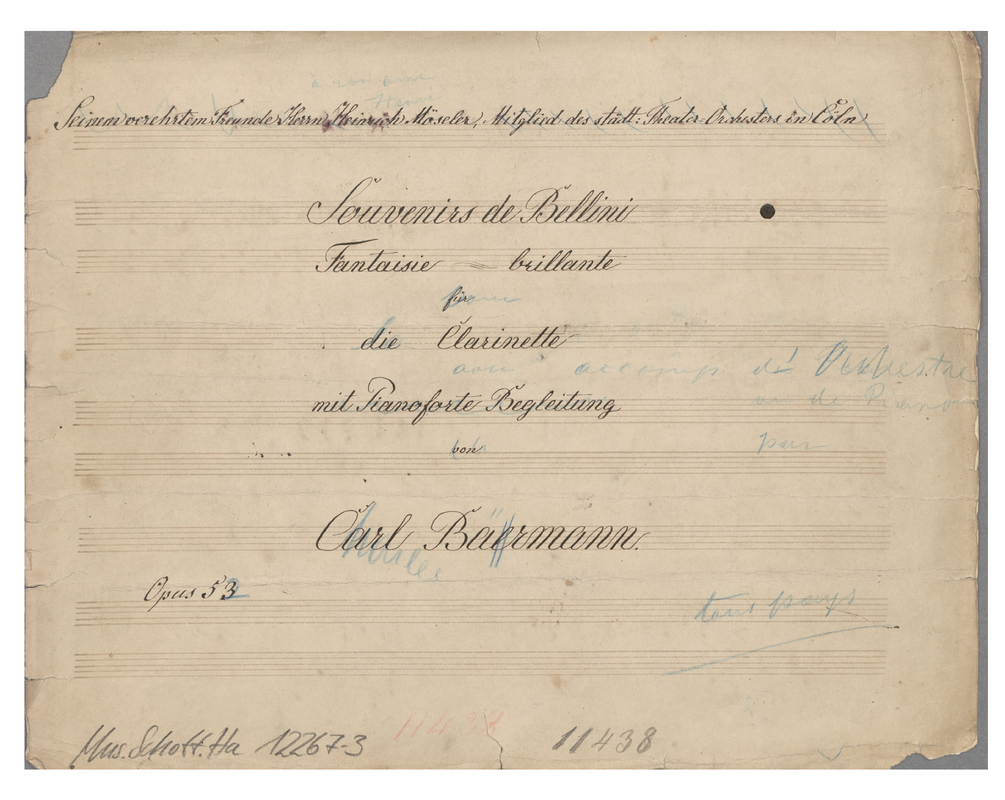 à son ami
Seinem verehrtem Freunde Herrn Heinrich Möseler, Mitglied des städt: Theater-Orchesters in Cöln
Souvenirs de Bellini
Fantaisie - brillante
für
die Clarinette
avec accomp d'Orchestre
mit Pianoforte Begleitung
ou de Piano
von par
Carl Bäermann.
Opus 53 2
tous pays
11438
Mus. Schott. Ha 12267-3 11438